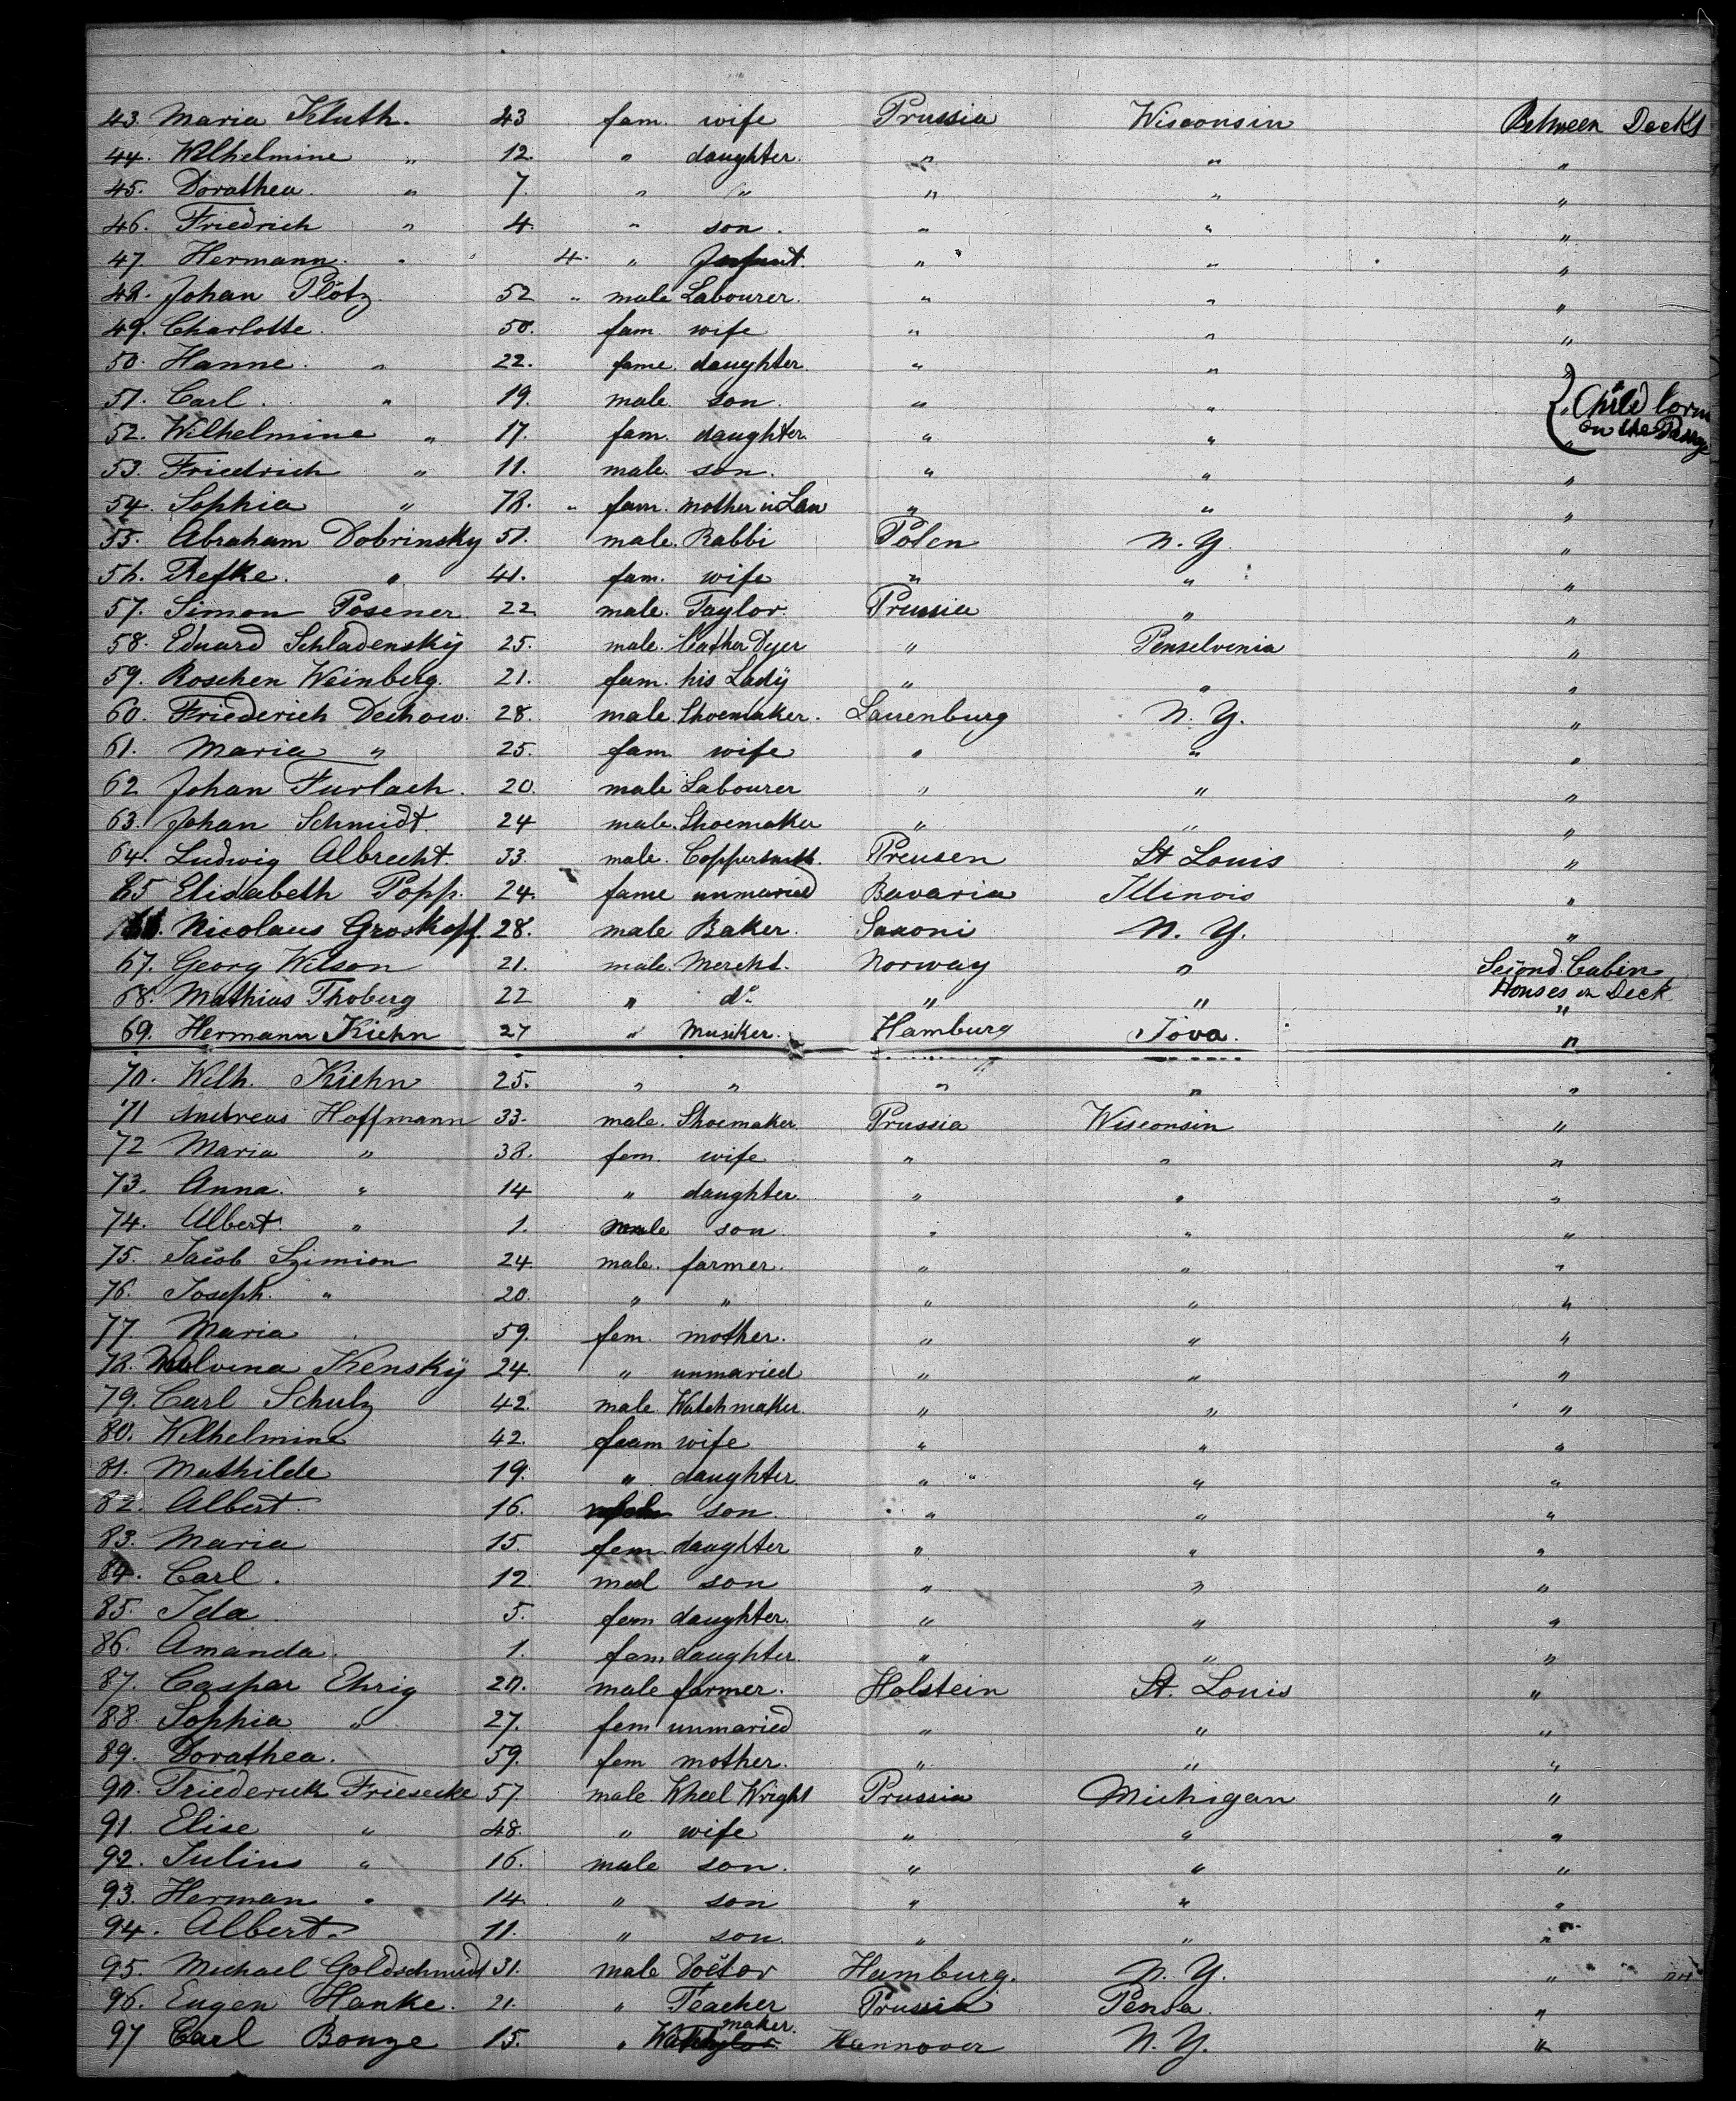 43. Maria Kluth. 43 fam. wife Prussia Wisconsin Between Decks
44. Wilhelmine " 12. " daughter. " " "
45. Dorathea. " 7. " " " " "
46. Friedrich " 4. " son. " " "
47. Hermann. " 4. " Infant. " " "
48. Johan Plötz. 52 " male Labourer. " " "
49. Charlotte. 50. fam. wife " " "
50. Hanne. " 22. fame. daughter. " " "
51. Carl. " 19. male. son. " " " Child born
52. Wilhelmine " 17. fam. daughter. " " " on the
53. Friedrich " 11. male. son. " " "
54. Sophia " 78. " fam. mother in Law " " "
55. Abraham Dobrinsky 51. male. Rabbi Polen N. Y. "
56. Refke. " 41. fam. wife " " "
57. Simon Posener. 22 male. Taylor. Prussia " "
58. Eduard Schladensky 25. male. Leather Dyer " Penselvenia "
59. Roschen Weinberg. 21. fam. his Lady " " "
60. Friederich Dechow. 28. male. Shoemaker. Lauenburg N. Y. "
61. Maria " 25. fam. wife " " "
62 Johan Furlach. 20. male Labourer " " "
63. Johan Schmidt. 24 male. Shoemaker " " "
64. Ludwig Albrecht. 33. male. Coppersmith. Preusen St Louis "
65 Elisabeth Popp. 24. fame unmaried Bavaria Illinois "
66. Nicolaus Groskopf. 28. male Baker. Saxoni N. Y. "
67. Georg Wilson 21. male. Mercht. Norway " Second Cabin
68. Mathias Thoberg 22 " do " " Houses on Deck
69. Hermann Kiehn 27 " Musiker. Hamburg Iova. "
70. Wilh. Kiehn 25. " " " " "
71 Andreas Hoffmann 33. male. Shoemaker. Prussia Wisconsin "
72 Maria " 38. fem. wife " " "
73. Anna. " 14 " daughter. " " "
74. Albert. " 1. male son. " " "
75. Jacob Szimion 24 male. farmer. " " "
76. Joseph. " 20. " " " " "
77. Maria " 59. fem. mother. " " "
78. Malvina Kensky 24. " unmaried " " "
79. Carl Schulz 42. male. Watchmaker. " " "
80. Wilhelmine 42. faam wife " " "
81. Mathilde 19. " daughter. " " "
82. Albert. 16. son. " " "
83. Maria 15. fem. daughter " " "
84. Carl. 12. mal son " " "
85. Ida 5. fem daughter. " " "
86. Amanda. 1. fam daughter. " " "
87. Caspar Ehrig 20. male farmer. Holstein St. Louis "
88. Sophia " 27. fem unmaried " " "
89. Dorathea. 59. fem mother. " " "
90. Friederick Friesecke 57. male Wheel Wright Prussia Michigan "
91. Elise " 48. " wife " " "
92. Julius " 16. male son. " " "
93. Herman " 14. " son " " "
94. Albert. 11. " son. " " "
95. Michael Goldschmidt 31. male Doctor Hamburg. N. Y. "
96. Eugen Hanke. 21. " Teacher Prussia Pensa. "
97 Carl Bonze 15. " Watch maker. Hannover N. Y. "